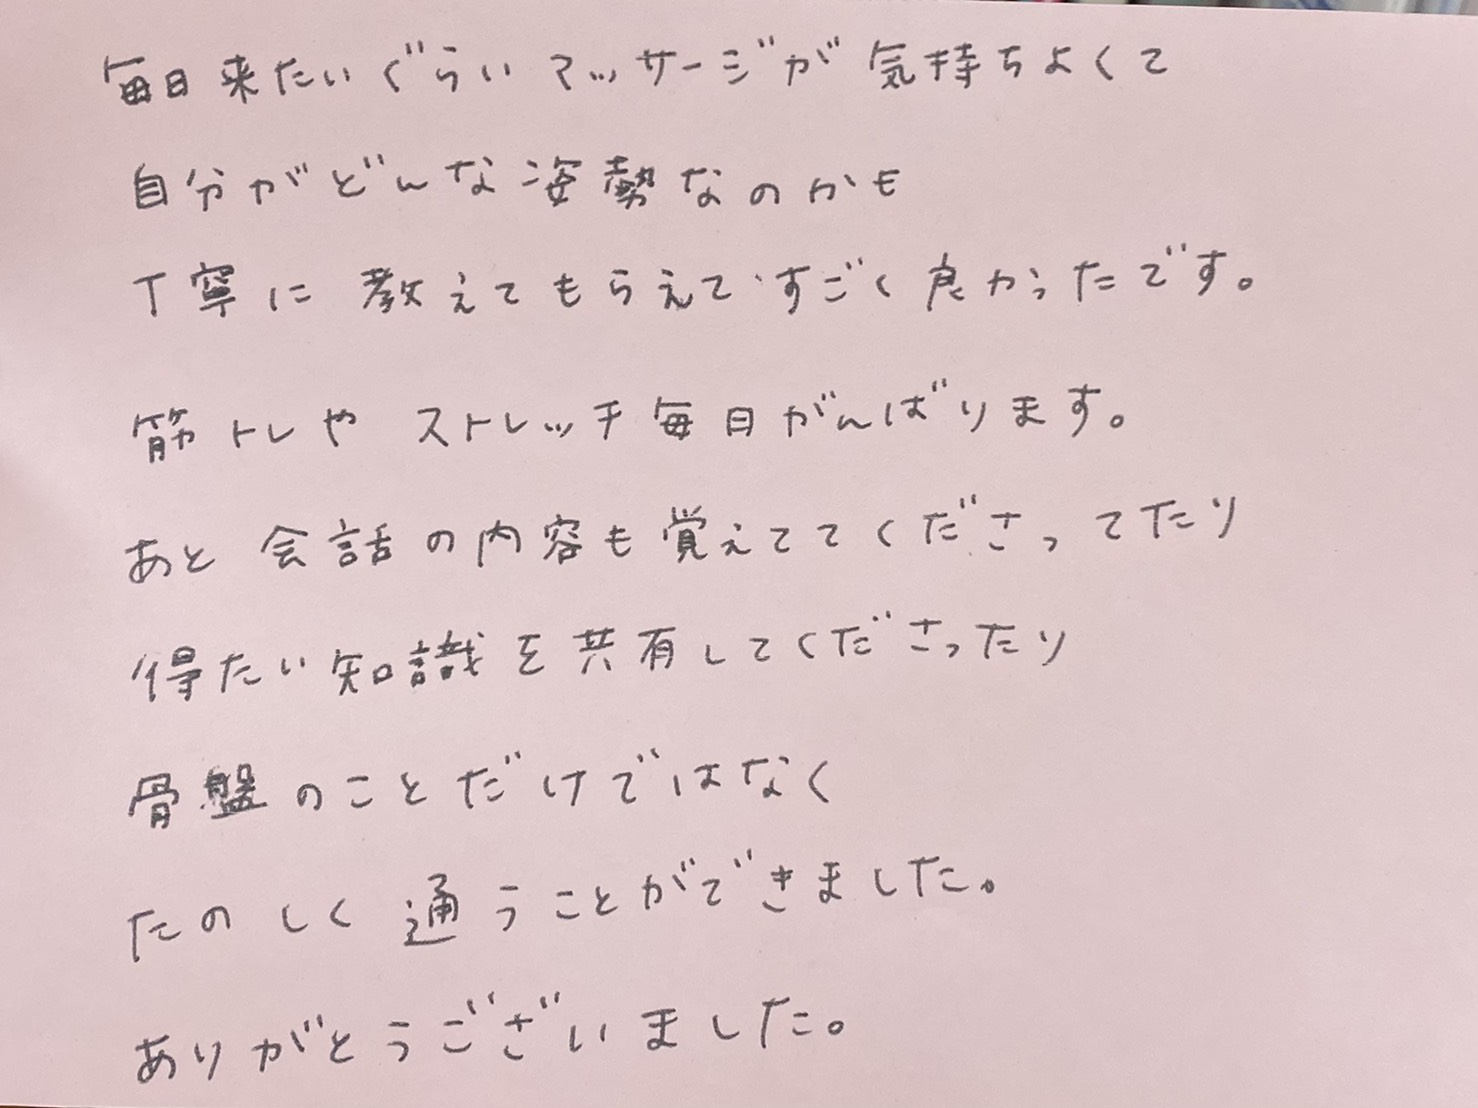 毎日来たいぐらいマッサージが気持ちよくて
自分がどんな姿勢なのかも
丁寧に教えてもらえてすごく良かったです。
筋トレやストレッチ毎日がんばります。
あと会話の内容も覚えててくださってたり
得たい知識を共有してくださったり
骨盤のことだけではなく
たのしく通うことができました。
ありがとうございました。